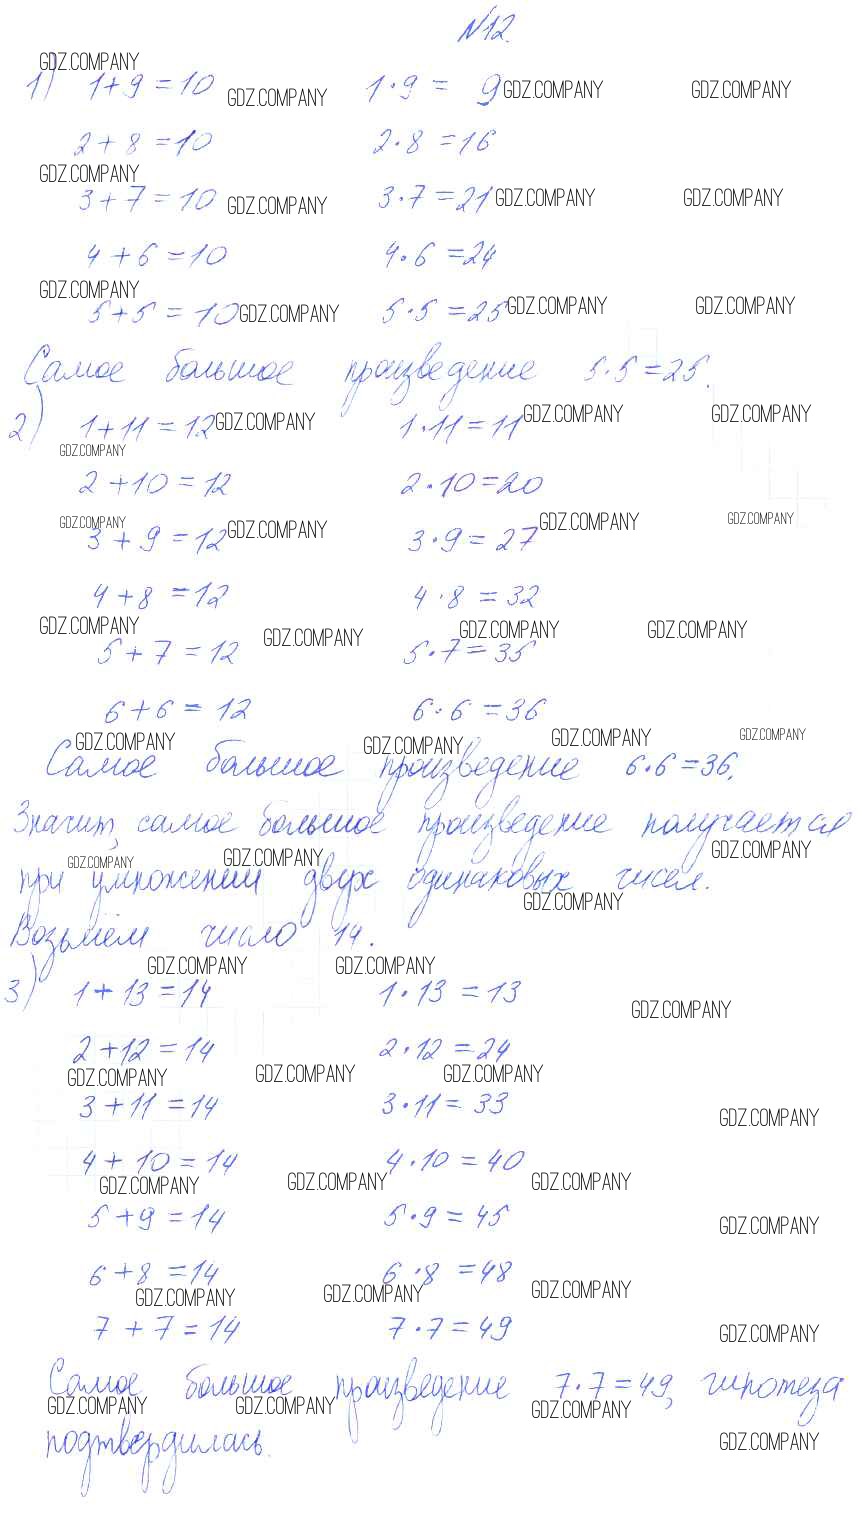 №12.
GDZ.COMPANY
1) 1+9=10 GDZ.COMPANY 1·9= 9 GDZ.COMPANY GDZ.COMPANY
2+8=10 2·8=16
GDZ.COMPANY
3+7=10 GDZ.COMPANY 3·7=21 GDZ.COMPANY GDZ.COMPANY
4+6=10 4·6=24
GDZ.COMPANY
5+5=10 GDZ.COMPANY 5·5=25 GDZ.COMPANY GDZ.COMPANY
Самое большое произведение 5·5=25.
2) 1+11=12 GDZ.COMPANY 1·11=11 GDZ.COMPANY GDZ.COMPANY
GDZ.COMPANY
2+10=12 2·10=20
GDZ.COMPANY GDZ.COMPANY GDZ.COMPANY
3+9=12 GDZ.COMPANY 3·9=27
4+8=12 4·8=32
GDZ.COMPANY GDZ.COMPANY GDZ.COMPANY GDZ.COMPANY
5+7=12 5·7=35
6+6=12 6·6=36
GDZ.COMPANY GDZ.COMPANY GDZ.COMPANY GDZ.COMPANY
Самое большое произведение 6·6=36.
Значит, самое большое произведение получается
GDZ.COMPANY GDZ.COMPANY GDZ.COMPANY
при умножении двух одинаковых чисел.
GDZ.COMPANY
Возьмём число 14.
GDZ.COMPANY GDZ.COMPANY
3) 1+13=14 1·13=13
GDZ.COMPANY
2+12=14 2·12=24
GDZ.COMPANY GDZ.COMPANY GDZ.COMPANY
3+11=14 3·11=33
GDZ.COMPANY
4+10=14 4·10=40
GDZ.COMPANY GDZ.COMPANY GDZ.COMPANY
5+9=14 5·9=45
GDZ.COMPANY
6+8=14 6·8=48
GDZ.COMPANY GDZ.COMPANY GDZ.COMPANY
7+7=14 7·7=49
GDZ.COMPANY
Самое большое произведение 7·7=49, гипотеза
GDZ.COMPANY GDZ.COMPANY GDZ.COMPANY
подтвердилась.
GDZ.COMPANY